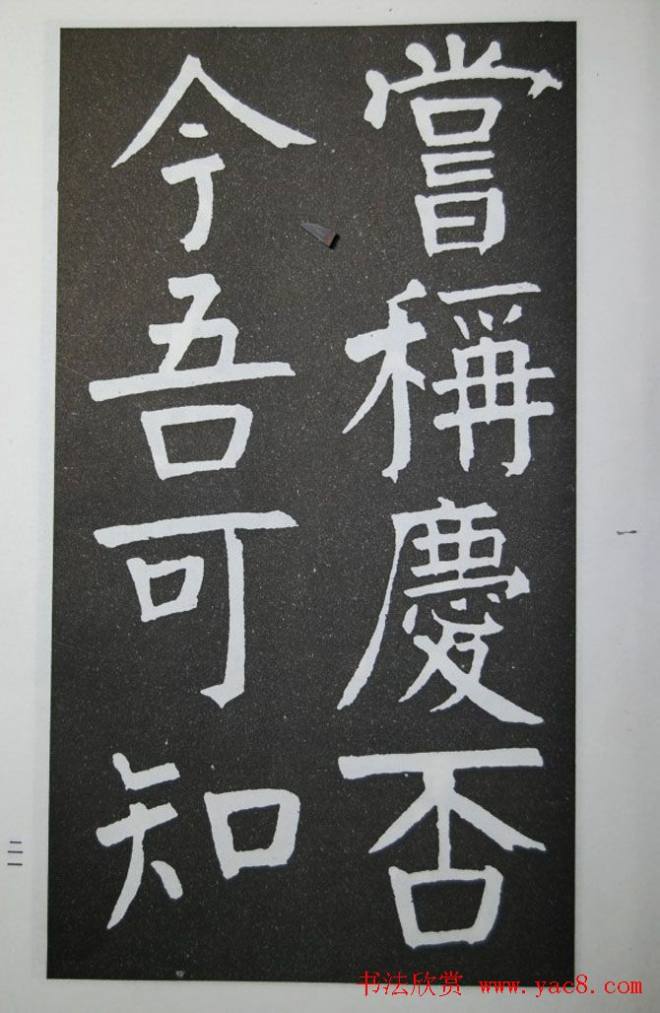 甞稱慶否
今吾可知
一
三
书法欣赏 www.yac8.com